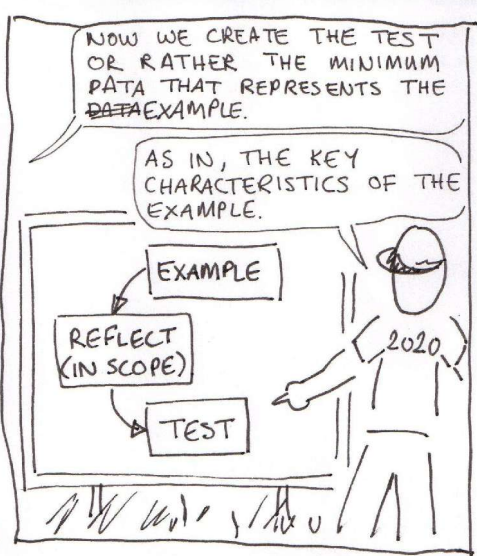 NOW WE CREATE THE TEST
OR RATHER THE MINIMUM
DATA THAT REPRESENTS THE
DATA EXAMPLE.
AS IN, THE KEY
CHARACTERISTICS OF THE
EXAMPLE.
EXAMPLE
REFLECT
(IN SCOPE)
TEST
2020